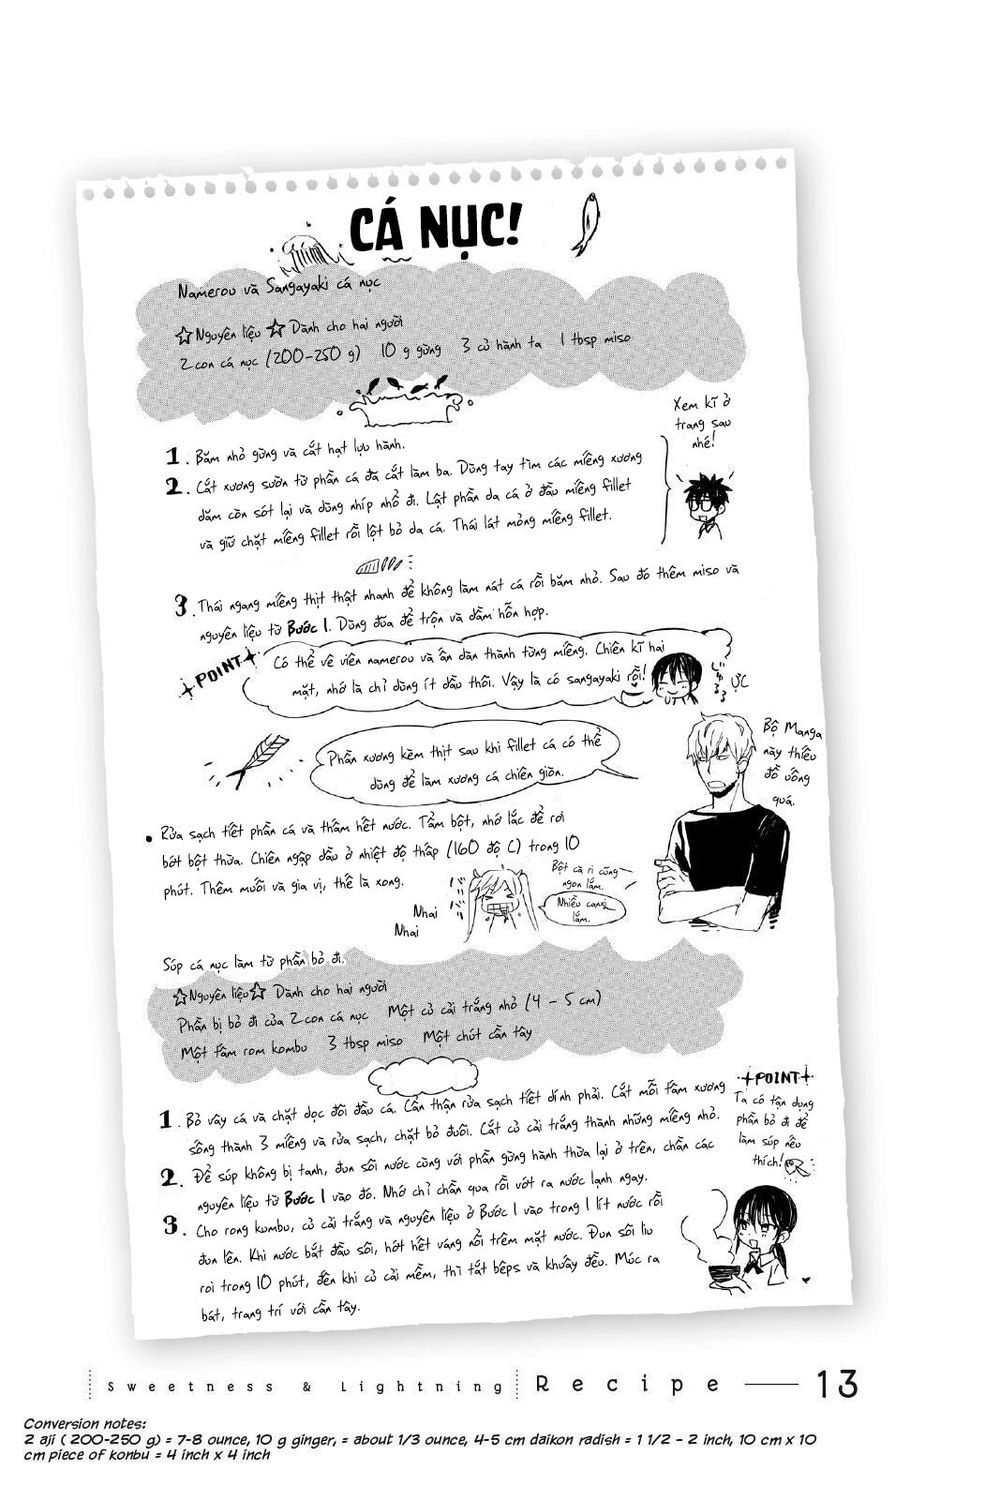 CÁ NỤC!
Namerou và Sangayaki cá nục
☆Nguyên liệu ☆ Dành cho hai người
2 con cá nục (200-250 g) 10 g gừng 3 củ hành ta 1 tbsp miso
Xem kĩ ở
trang sau
nhé!
1. Băm nhỏ gừng và cắt hạt lựu hành.
2. Cắt xương sườn từ phần cá đã cắt làm ba. Dùng tay tìm các miếng xương
dăm còn sót lại và dùng nhíp nhổ đi. Lật phần da cá ở đầu miếng fillet
và giữ chặt miếng fillet rồi lột bỏ da cá. Thái lát mỏng miếng fillet.
3. Thái ngang miếng thịt thật nhanh để không làm nát cá rồi băm nhỏ. Sau đó thêm miso và
nguyên liệu từ Bước 1. Dùng đũa để trộn và dầm hỗn hợp.
POINT
Có thể vê viên namerou và ấn dàn thành từng miếng. Chiên kĩ hai
mặt, nhớ là chỉ dùng ít dầu thôi. Vậy là có sangayaki rồi!
ỰC
Phần xương kèm thịt sau khi fillet cá có thể
dùng để làm xương cá chiên giòn.
Bộ Manga
này thiếu
đồ uống
quá.
• Rửa sạch tiết phần cá và thấm hết nước. Tẩm bột, nhớ lắc để rơi
bớt bột thừa. Chiên ngập dầu ở nhiệt độ thấp (160 độ C) trong 10
phút. Thêm muối và gia vị, thế là xong.
Bột cà ri cũng
ngon lắm.
Nhiều canxi
lắm.
Nhai
Nhai
Súp cá nục làm từ phần bỏ đi.
☆Nguyên liệu☆ Dành cho hai người
Phần bị bỏ đi của 2 con cá nục Một củ cải trắng nhỏ (4 - 5 cm)
Một tấm rom kombu 3 tbsp miso Một chút cần tây
1. Bỏ vây cá và chặt dọc đôi đầu cá. Cẩn thận rửa sạch tiết dính phải. Cắt mỗi tấm xương
sống thành 3 miếng và rửa sạch, chặt bỏ đuôi. Cắt củ cải trắng thành những miếng nhỏ.
2. Để súp không bị tanh, đun sôi nước cùng với phần gừng hành thừa lại ở trên, chần các
nguyên liệu từ Bước 1 vào đó. Nhớ chỉ chần qua rồi vớt ra nước lạnh ngay.
3. Cho rong kombu, củ cải trắng và nguyên liệu ở Bước 1 vào trong 1 lít nước rồi
đun lên. Khi nước bắt đầu sôi, hớt hết váng nổi trêm mặt nước. Đun sôi liu
roi trong 10 phút, đến khi củ cải mềm, thì tắt bếps và khuấy đều. Múc ra
bát, trang trí với cần tây.
POINT
Ta có tận dụng
phần bỏ đi để
làm súp nếu
thích!
Sweetness & Lightning Recipe — 13
Conversion notes:
2 aji ( 200-250 g) = 7-8 ounce, 10 g ginger, = about 1/3 ounce, 4-5 cm daikon radish = 1 1/2 - 2 inch, 10 cm x 10
cm piece of konbu = 4 inch x 4 inch